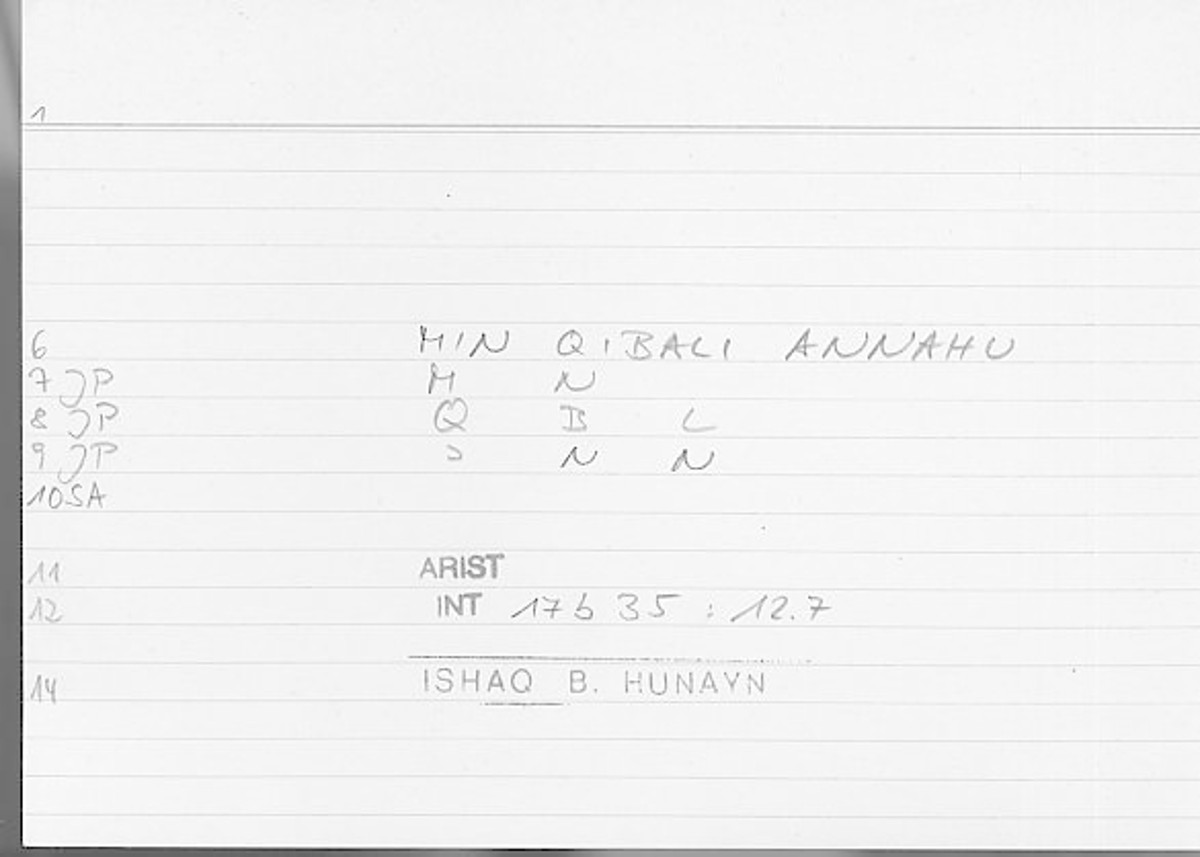 1
6 MIN QIBALI ANNAHU
7 JP M N
8 JP Q B L
9 JP Ɔ N N
10 SA
11 ARIST
12 INT 17b 35 : 12.7
14 ISHAQ B. HUNAYN